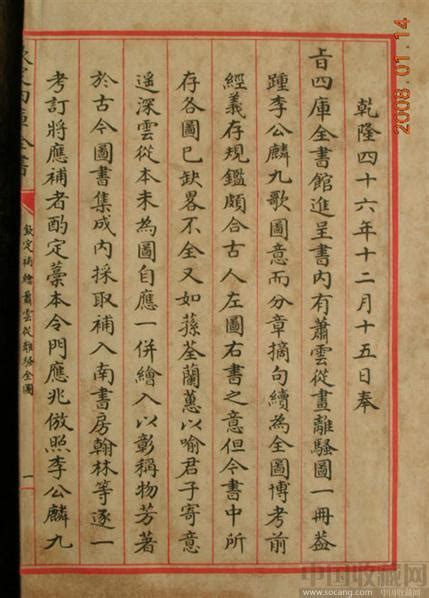 乾隆四十六年十二月十五日奉
旨四庫全書館進呈書內有蕭雲從畫離騷圖一冊蓋
踵李公麟九歌圖意而分章摘句續為全圖博考前
經義存規鑑頗合古人左圖右書之意但今書中所
存各圖已缺畧不全又如蓀荃蘭蕙以喻君子寄意
遥深雲從本未為圖自應一併繪入以彰稱物芳著
於古今圖書集成內採取補入南書房翰林等逐一
考訂將應補者酌定藁本令門應兆倣照李公麟九
定四庫全書
欽定補繪蕭雲從離騷全圖
一
2008.01.14
中国收藏网
www.socang.com